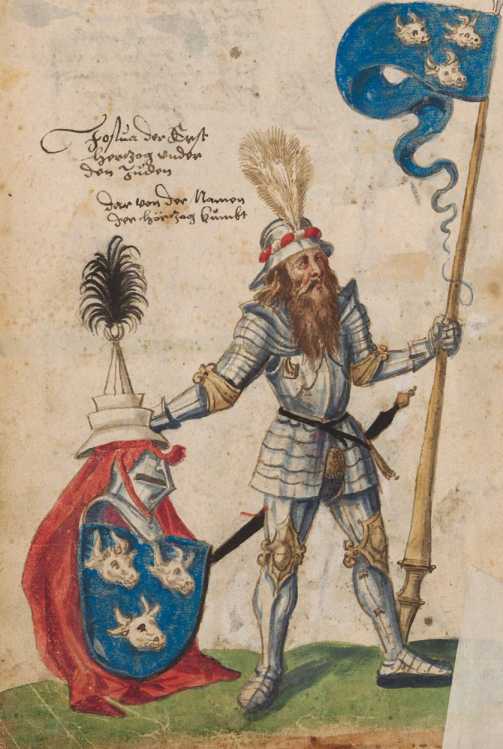 Josua der Erst
Hertzog vnder
den Juden
Dar von der Namen
der hörtzog kumbt